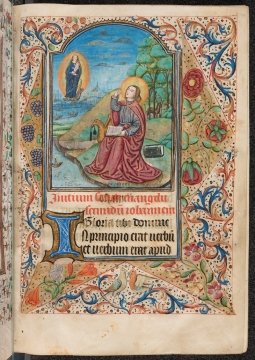 Initium sancti evangelii
secundum iohannem
Gloria tibi domine
IN principio erat verbū
et verbum erat apud